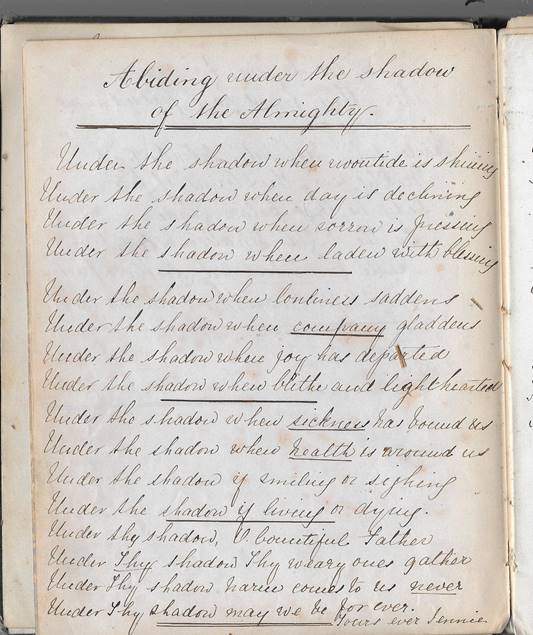 Abiding under the shadow
of the Almighty.
Under the shadow when noontide is shining
Under the shadow when day is declining
Under the shadow when sorrow is pressing
Under the shadow when laden with blessing
Under the shadow when lonliness saddens
Under the shadow when company gladdens
Under the shadow when joy has departed
Under the shadow when blithe and light hearted
Under the shadow when sickness has bound us
Under the shadow when health is around us
Under the shadow if smiling or sighing
Under the shadow if living or dying.
Under thy shadow, O bountiful Father
Under Thy shadow Thy weary ones gather
Under Thy shadow harm comes to us never
Under Thy shadow may we be for ever.
Yours ever Jennie